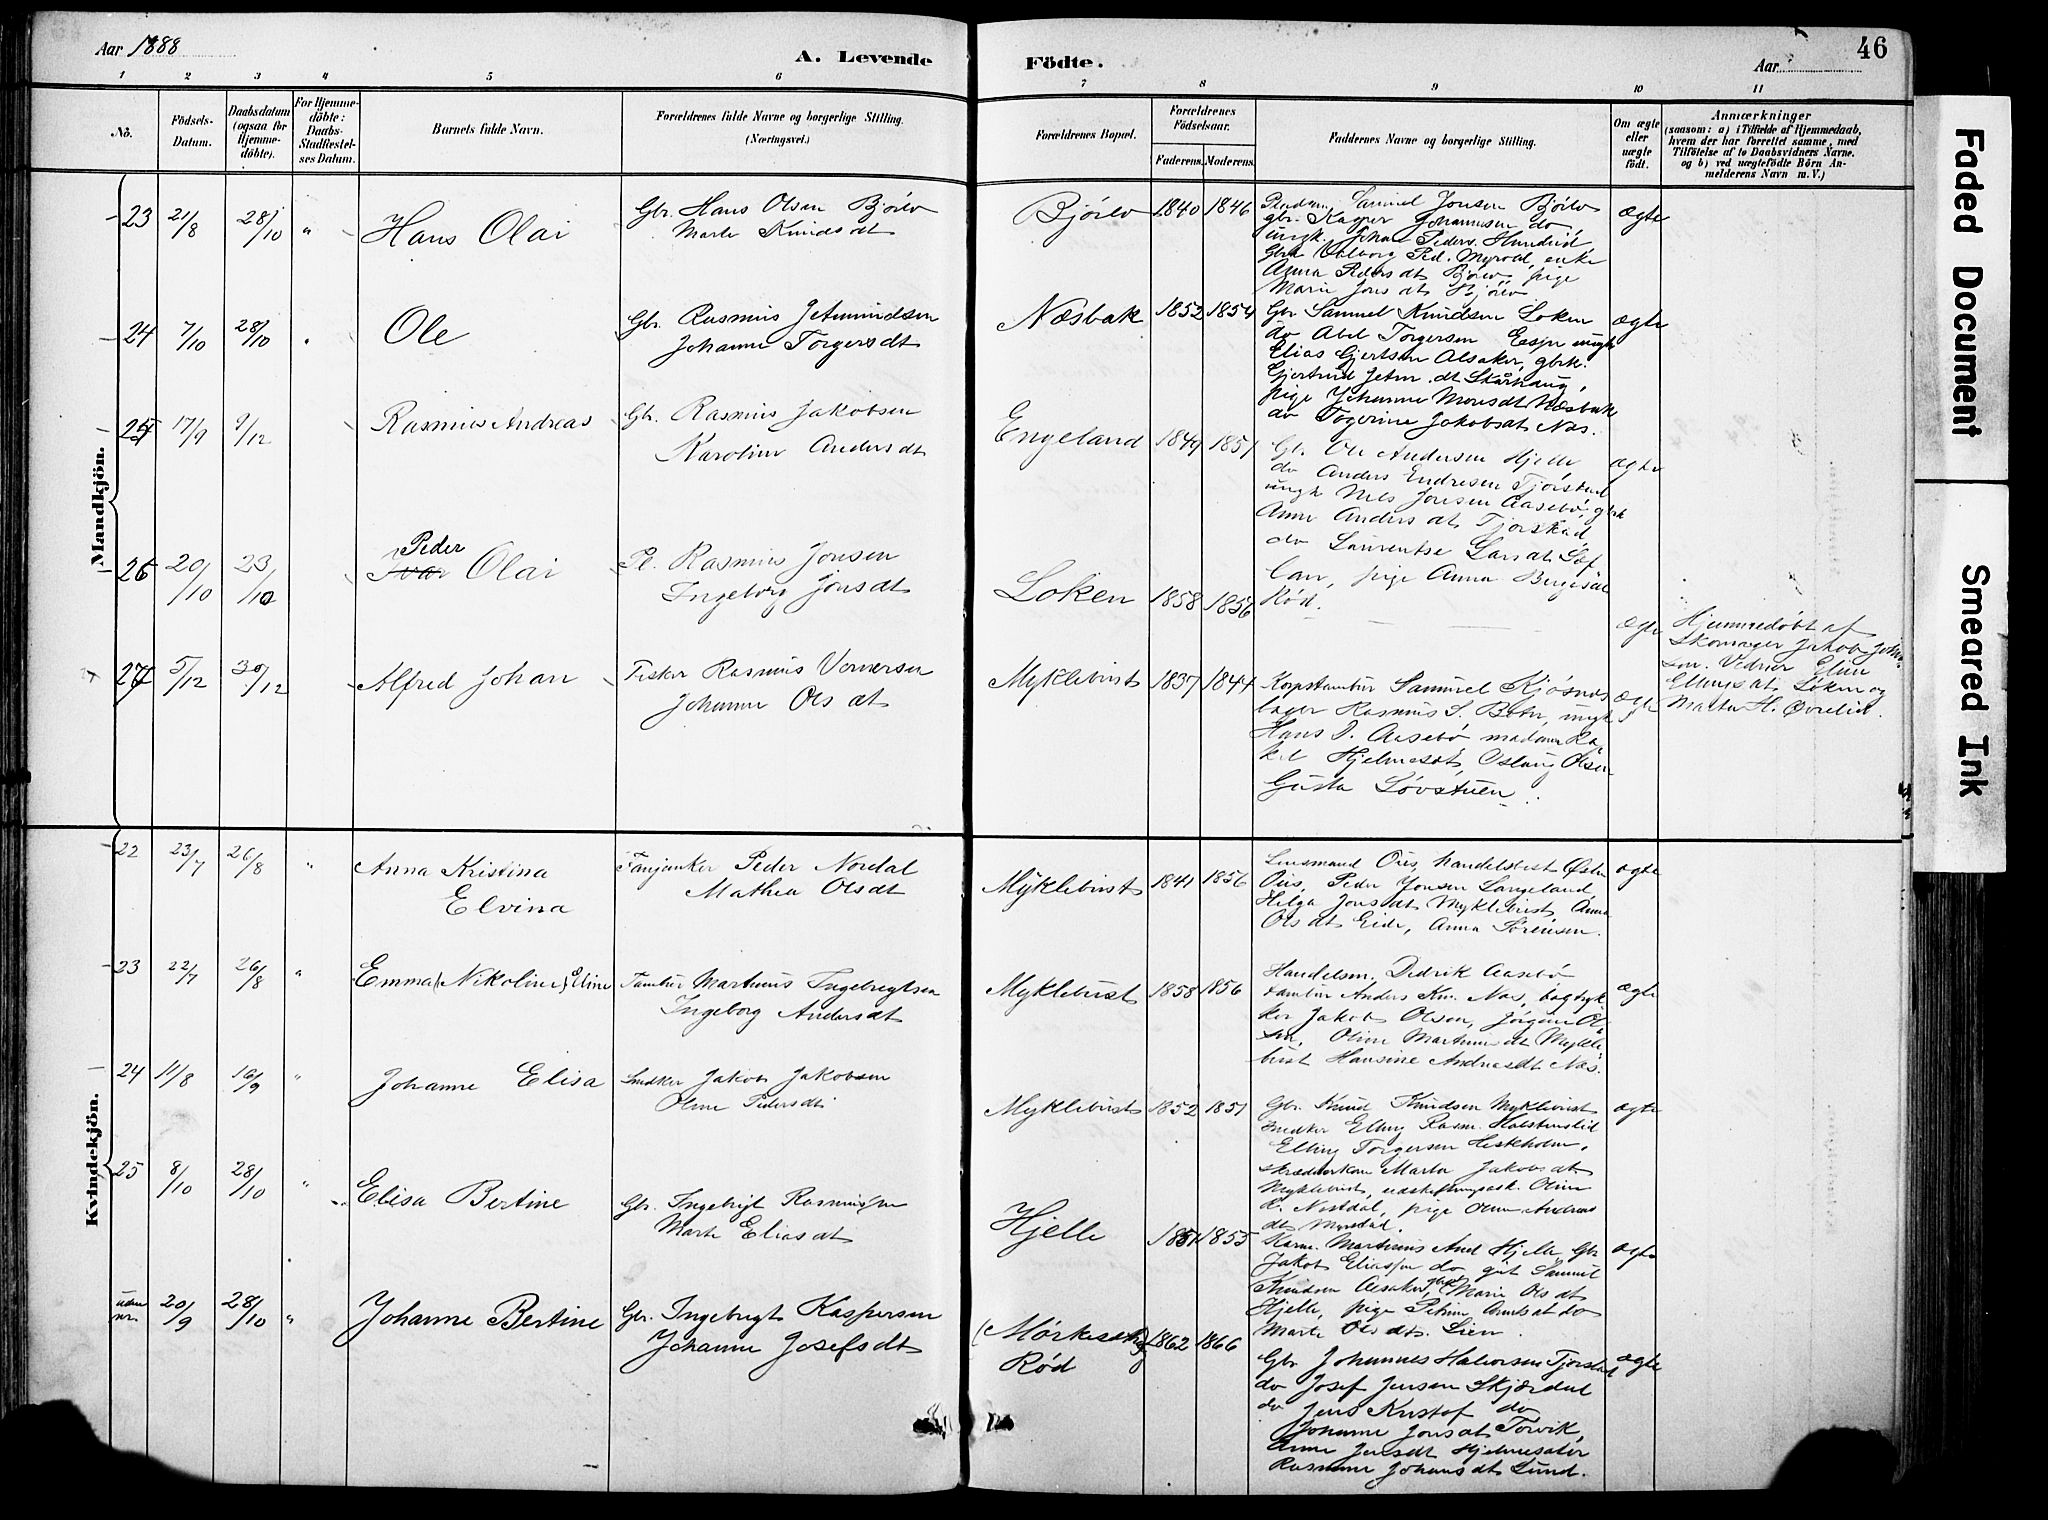 Aar 1888
A. Levende
Födte.
Aar
46
1 2 3 4 5 6 7 8 8 9 10 11
No.
Födsels-
Datum.
Daabsdatum
(ogsaa for
Hjemme-
döbte).
For Hjemme-
döbte:
Daabs-
Stadfæstel-
ses Datum.
Barnets fulde Navn.
Forældrenes fulde Navne og borgerlige Stilling.
(Næringsvei.)
Forældrenes Bopæl.
Forældrenes
Födselsaar.
Faderens. Moderens.
Faddernes Navne og borgerlige Stilling.
Om ægte
eller
uægte
födt.
Anmærkninger
(saasom: a) i Tilfælde af Hjemmedaab,
hvem der har forrettet samme, med
Tilföielse af to Daabsvidners Navne.
og b) ved uægtefödte Börn An-
melderens Navn m. V.)
Mandkjön.
23 21/8 28/10 " Hans Olai
Gbr. Hans Olsen Bjórlo
Marte Knudsdt
Bjórlo 1840 1846
Samuel Jonsen Bjórlo
gbr. Kasper Johannesen do,
ungk. Johan Peders.
Gbrk Valborg Ped. Myrold, enke
Anna Pedersdt Bjórlo, pige
Marie Jonsdt Bjórlo
ægte
24 7/10 28/10 " Ole
Gbr. Rasmus Jetmundsen
Johanne Torgersdt
Næsbak 1852 1854
Gbr Samuel Knudsen Loken
do Abel Torgersen Espe ungk
Elias Gjertsen Alsaker, gbrk.
Gjertrud Jetm.dt Skårhaug,
pige Johanne Monsdt Næsbak
do Togerine Jakobsdt Nos.
ægte
25 17/9 9/12 Rasmus Andreas
Gbr. Rasmus Jakobsen
Karoline Andersdt
Engeland 1849 1851
Gb. Ole Andersen Hjelle
do Anders Endresen Tjorstad
ungk Nils Jonsen Aasebö, gbrk
Anne Andersdt Tjorstad,
do Laurentse Larsdt
pige Anna
Röd.
ægte
26 20/10 23/10 Peder
Ivar Olai
Pl. Rasmus Jonsen
Ingeborg Jonsdt
Loken 1858 1856
ægte
Hjemmedöbt af
Skomager Jakob Johan-
sen. Vidner Eline
Ellingsdt Loken og
Marta H. Övrelid.
27 5/12 30/12 Alfred Johan
Fisker Rasmus Vernersen
Johanne Olsdt
Myklebust 1837 1844
Korpstambur Samuel Kjösnes
bager Rasmus S. Boter, ungk
Hans D. Aasebö madame Ra-
kel Hjelmeset, Oslaug Olsen
Gusta Lövstuen.
ægte
Kvindekjön.
22 23/7 26/8 " Anna Kristina
Elvina
Fanjunker Peder Nordal
Mathea Olsdt
Myklebust 1841 1856
Lensmand Ous, handelsbest Östen
Ous, Peder Jonsen Langeland
Helga Jonsdt Myklebust, Anna
Olsdt Eide, Anna Sörensen.
ægte
23 22/7 26/8 " Emma (Nikoline) Eline
Tambur Martinus Ingebrigtsen
Ingeborg Andersdt
Myklebust 1858 1856
Handelsm. Didrik Aasebö
tambur Anders Kn. Nos, bogtryk-
ker Jakob Olsen, Jörgine Ol-
sen, Oline Martinusdt Mykle-
bust Hansine Andreasdt Nos.
ægte
24 11/8 16/9 " Johanne Elisa
Snedker Jakob Jakobsen
Oline Pedersdt
Myklebust 1852 1851
Gbr. Knud Knudsen Myklebust
snedker Elling Rasm. Holstenslid
Elling Torgersen Hestholm,
skrædderkone Marta Jakobsdt
Myklebust, Oline
R. Nordal, pige Oline Andreas
dt Myrold.
ægte
25 8/10 28/10 " Elisa Bertine
Gbr. Ingebrigt Rasmussen
Marte Eliasdt
Hjelle 1851 1855
Martinus And Hjelle, Gbr
Jakob Eliassen do, gut Samuel
Knudsen Alsaker, gbrk Marie Olsdt
Hjelle, pige Petrine Andsdt do
Marte Olsdt. Lien.
ægte
uden
nr. 20/9 28/10 " Johanne Bertine
Gbr. Ingebrigt Kaspersen
Johanne Josefsdt
Röd 1862 1866
Gbr Johannes Halvorsen Tjorstad
do Josef Jensen Skjærdal
do Jens Kristof do
Johanne Jonsdt Torvik,
Anne Jensdt Hjelmesæter
Rasmine Johansdt Lund.
ægte
Faded Document
Smeared Ink